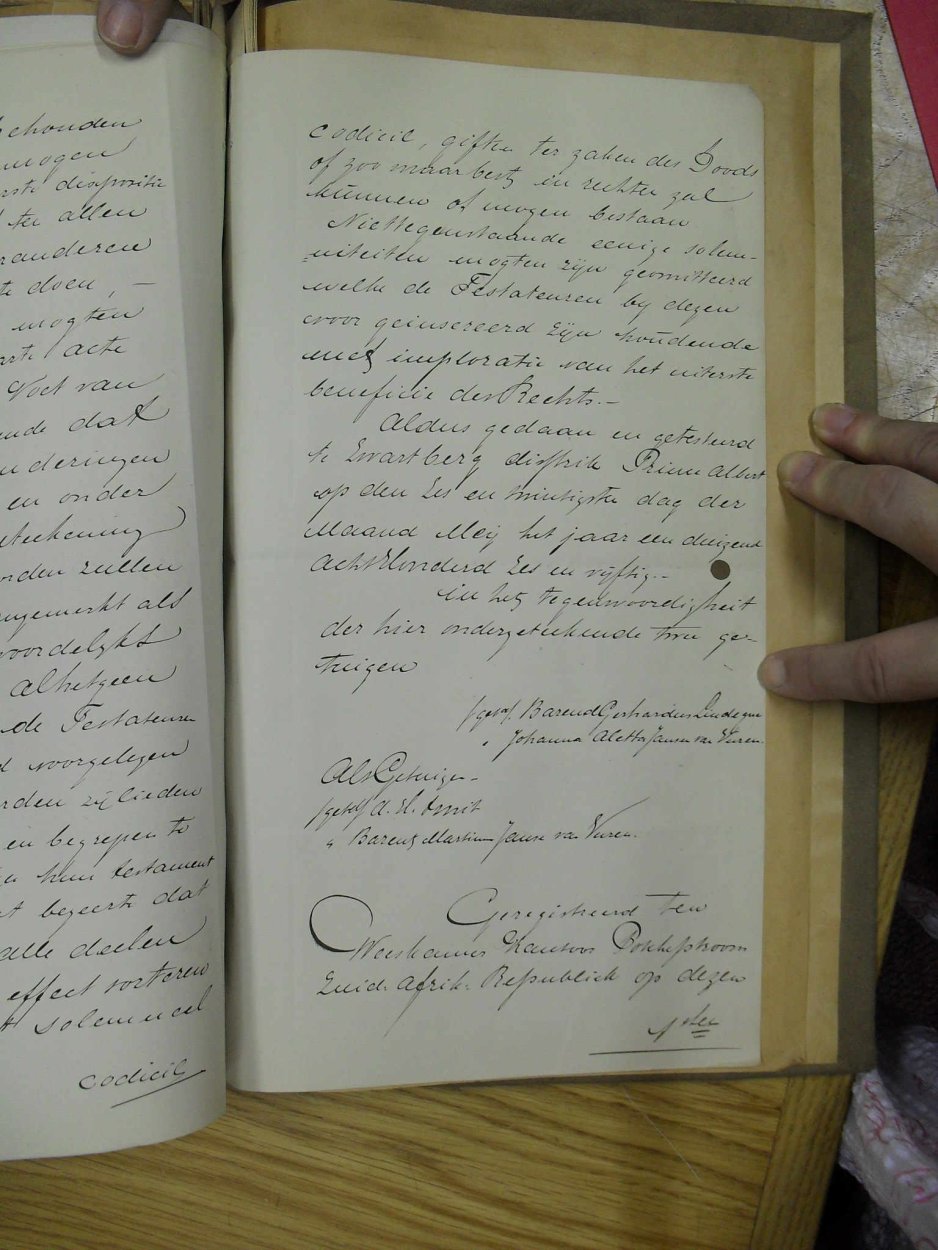 ehouden
mogen
rste dispositie
ter allen
randeren
te doen, —
mogten
arte acte
Voet van
ende dat
nderingen
en onder
eteekening
orden zullen
angemerkt als
woordelyks
alhetgeen
de Testateuren
d voorgelegen
rden zijlieden
en begrepen te
hun testament
t begeerte dat
alle doelen
effect sorteren
t solemneel
codicil
codicil, giften ter zaken des Doods
of zoo maar best in rechte zal
kunnen of mogen bestaan
Niettegenstaande eenige solem-
=niteiten mogten zijn geomitteerd
welke de Testateuren by dezen
voor geinsereerd zijn houdende
met imploratie van het uiterste
beneficie des Rechts.—
Aldus gedaan en getesteerd
te Zwartberg distrik Prins Albert
op den Zes en twintigste dag der
Maand Meij het jaar een duizend
acht Honderd Zes en vyftig.—
in het tegenwoordigheit
der hier ondergeteekende twee ge-
tuigen
/get/. Barend Gerhardus Lindeque
" Johanna Aletta Janse van Vuren.
Als Getuigen
/get/ A. H.
" Barend Martinus Janse van Vuren.
Geregistreerd ten
Weeskamer Kantoor Potchefstroom
Zuid. Afrik. Republiek op dezen
1ster